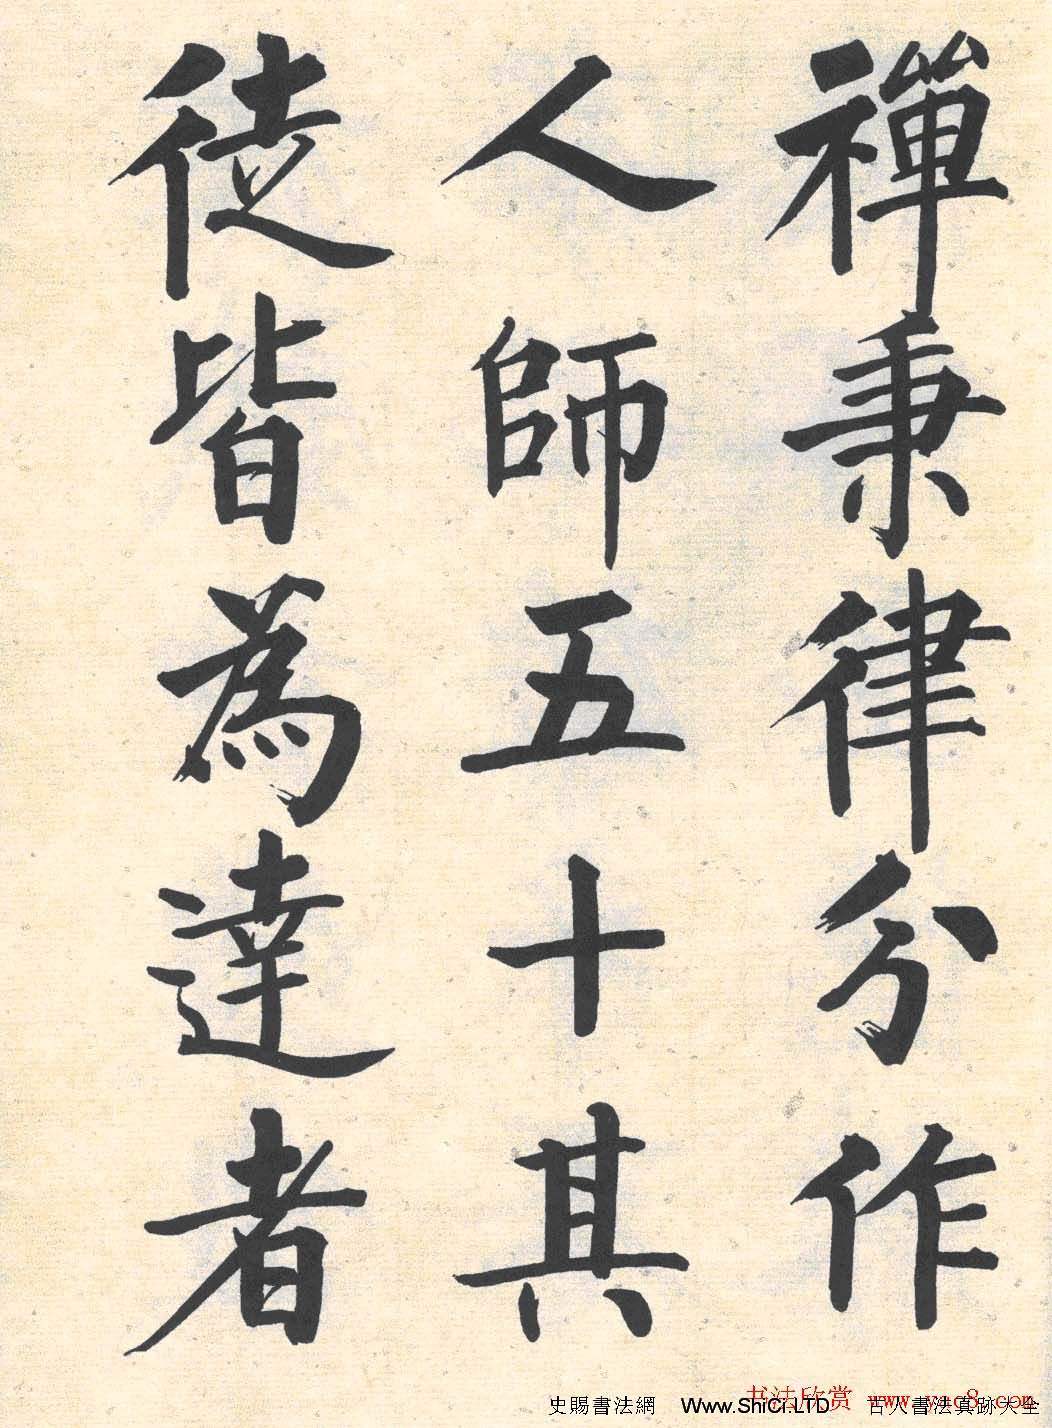 禪秉律分作
人師五十其
徒皆為達者
史賜書法網 Www.ShiCi.LTD 古人書法真跡大全
书法欣赏 www.yac8.com